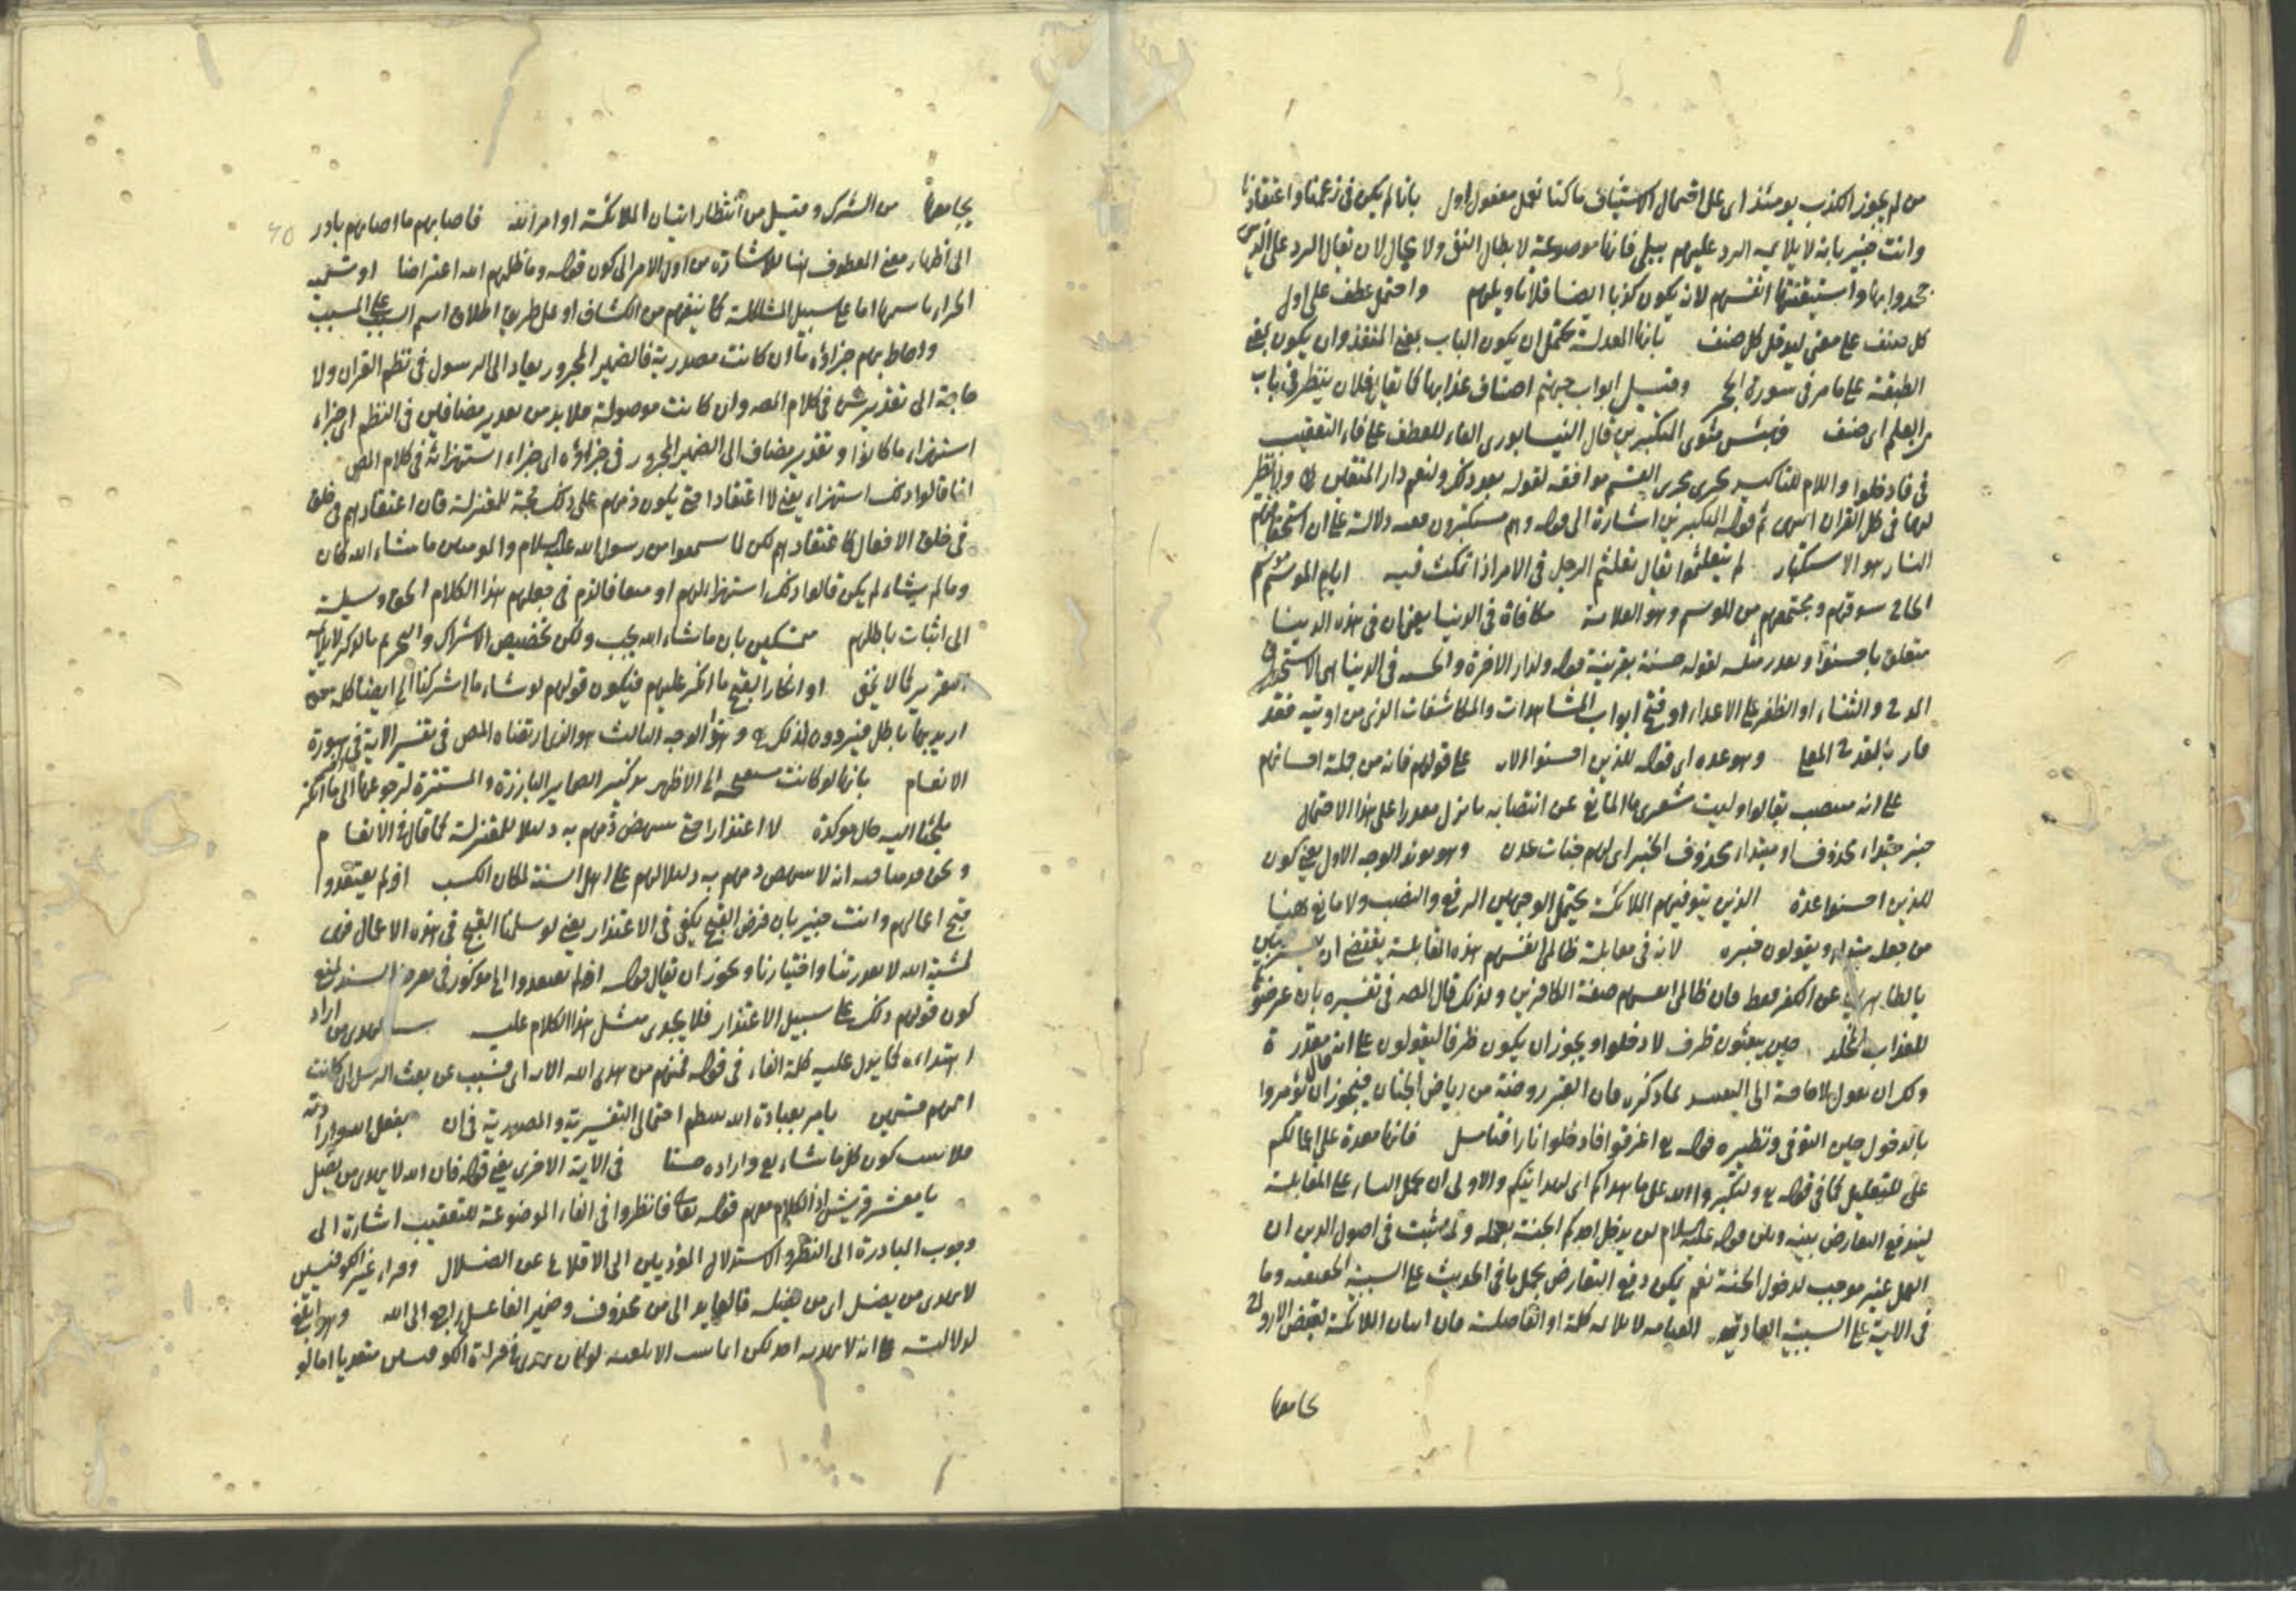 من لم يجوز الكذب يومئذ اى على احتمال الاستيناف ما كنا نعمل مفعول اول بانا لم يكن فى زعمنا واعتقادنا
وانت خبير بانه لا يلايمه الرد عليهم ببلى فانها موضوعة لابطال النفى ولا مجال لان يقال الرد على الذين
جحدوا بها واستيقنتها انفسهم لان يكون كذبا ايضا فلا تاويلهم واحتمل عطف على اول
كل صنف على معنى ليدخل كل صنف بابها المعد له يحتمل ان يكون الباب بمعنى المنفذ وان يكون بمعنى
الطبقة على ما مر فى سورة الحجر وقيل ابواب جهنم اصناف عذابها كما يقال فلان ينظر فى باب
من العلم اى صنف فبئس مثوى المتكبرين قال النيسابورى الفاء للعطف على فاء التعقيب
فى فادخلوا واللام للتاكيد يجرى مجرى القسم موافقه لقوله بعد ذلك ولنعم دار المتقين ولا نظير
لهما فى كل القران انتهى ثم قوله المتكبرين اشارة الى قوله وهم مستكبرون ففيه دلالة على ان استحقاقهم
النار هو الاستكبار لم يتعلثموا يقال تعلثم الرجل فى الامر اذا تمكث فيه ايام الموسم موسم
الحاج سوقهم ومجتمعهم من الوسم وهو العلامة مكافاة فى الدنيا يعنى ان فى هذه الدنيا
متعلق باحسنوا ويقدر مثله لقوله حسنة بقرينة قوله ولدار الاخرة والحسنة فى الدنيا هى الاستحقاق
المدح والثناء او الظفر على الاعداء او فتح ابواب المشاهدات والمكاشفات الذى من اوتيه فقد
فاز بالقدح المعلى وهو عده اى قوله للذين احسنوا الاية على قولهم فانه من جملة احسانهم
على انه منتصب بقالوا وليت شعرى ما المانع عن انتصابه بانزل مقدرا على هذا الاحتمال
خبر مبتداء محذوف او مبتداء محذوف الخبر اى لهم جنات عدن وهو يؤيد الوجه الاول يعنى كون
للذين احسنوا عدة الذين يتوفيهم الملائكة يحتمل الوجهين الرفع والنصب ولا مانع ههنا
من جعله مبتداء ويقولون خبره لانه فى مقابلة ظالمى انفسهم هذه المقابلة يقتضى ان يفسر طيبين
بالطاهرين عن الكفر فقط فان ظالمى انفسهم صفة الكافرين ولذلك قال المصـ فى تفسيره بان عرضوها
للعذاب المخلد حين يبعثون ظرف لادخلوا ويجوز ان يكون ظرفا ليقولون على انه حال مقدرة
ولك ان تقول لا حاجة الى التقييد بما ذكره فان القبر روضة من رياض الجنان فيجوز ان يؤمروا
بالدخول حين التوفى ونظيره قوله تع اغرقوا فادخلوا نارا فتامل فانها معدة على اعمالكم
على للتعليل كما فى قوله تع ولتكبروا الله على ما هداكم اى لهدايتكم والاولى ان يحمل الباء على المقابلة
ليندفع التعارض بينه وبين قوله عليه السلام لن يدخل احدكم الجنة بعمله وثم ثبت فى اصول الدين ان
العمل غير موجب لدخول الجنة نعم يمكن دفع التعارض بحمل ما فى الحديث على السببية الحقيقية وما
فى الاية على السببية العادية القيامة لا يلايمه كلمة او الفاصلة فان اتيان الملائكة لقبض الارواح
يجامعها
يجامعها من الشرك وقيل من انتظار اتيان الملائكة او امر الله فاصابهم ما اصابهم بادر
الى اظهار معنى المعطوف هنا للاشارة من اول الامر الى كون قوله وما ظلمهم الله اعتراضا او تسمية
الجزاء باسمها اما على سبيل المشاكلة كما يفهم من الكشاف او على طريق اطلاق اسم السبب على المسبب
واحاط بهم جزاؤه ما ان كانت مصدرية فالضمير المجرور يعاد الى الرسول فى نظم القران ولا
حاجة الى تقدير شئ فى كلام المصـ وان كانت موصولة فلا بد من تقدير مضافين فى النظم اى جزاء
استهزاء ما كانوا وتقدير مضاف الى الضمير المجرور فى جزاؤه اى جزاء استهزائه فى كلام المص
انما قالوا ذلك استهزاء يعنى لا اعتقادا حتى يكون ذمهم على ذلك حجة للمعتزلة فان اعتقادهم فى خلق
فى خلق الافعال كاعتقادهم لكن لما سمعوا من رسول الله عليه السلام والمومنين ما شاء الله كان
وما لم يشاء لم يكن قالوا ذلك استهزاء لهم او منعا فالذم فى جعلهم هذا الكلام الحق وسيلة
الى اثبات باطلهم متمسكين بان ما شاء الله يجب ولكن تخصيص الاشراك والتحريم بالذكر لا يلايمه
تقرير كما لا يخفى او انكارا لقبح ما انكر عليهم فيكون قولهم لو شاء ما اشركنا الخ ايضا كلمة حق
اريد بها باطل فيردون لذلك وهذا الوجه الثالث هو الذى ارتضاه المصـ فى تفسير الاية فى سورة
الانعام بانها لو كانت مستقبحة الخ الاظهر تذكير الضماير البارزة والمستترة لرجوعها الى ما انكر
ملجئا اليه حال موكدة لا اعتذارا حتى ينهض ذمهم به دليلا للمعتزلة كما قال فى الانعام
ونحن قدمنا فيه انه لا ينهض ذمهم به دليلا لهم على اهل السنة لمكان الكسب اذ لم يعتقدوا
قبح اعمالهم وانت خبير بان فرض القبح يكفى فى الاعتذار يعنى لو سلمنا القبح فى هذه الاعمال فهى
لمشية الله لا بقدرتنا واختيارنا ويجوز ان يقال قوله اذ لم يعتقدوا الخ مذكور فى معرض السند لمنع
كون قولهم ذلك على سبيل الاعتذار فلا يجدى مثل هذا الكلام عليه سببا لهدى من اراد
اهتداءه كما يدل عليه كلمة الفاء فى قوله فمنهم من هدى الله الاية اى فتسبب عن بعث الرسل ان كانت
امتهم قسمين يامر بعبادة الله ينتظم احتمالى التفسيرية والمصدرية فى ان بفعل الله وارادته
فلا يناسب كون كل ما شاء تع واراده حسنا فى الاية الاخرى يعنى قوله فان الله لا يهدى من يضل
يا معشر قريش اذ الكلام معهم قوله تعالى فانظروا فى الفاء الموضوعة للتعقيب اشارة الى
وجوب المبادرة الى النظر والاستدلال المؤديين الى الاقلاع عن الضلال وقراء غير الكوفيين
لا يهدى من يضل اى من يضله فالعايد الى من محذوف وضمير الفاعل راجع الى الله وهو ابلغ
لدلالته على انه لا يهديه احد لكن اثبات الابلغية لو كان يهدى فى قراءة الكوفيين متعديا اما لو